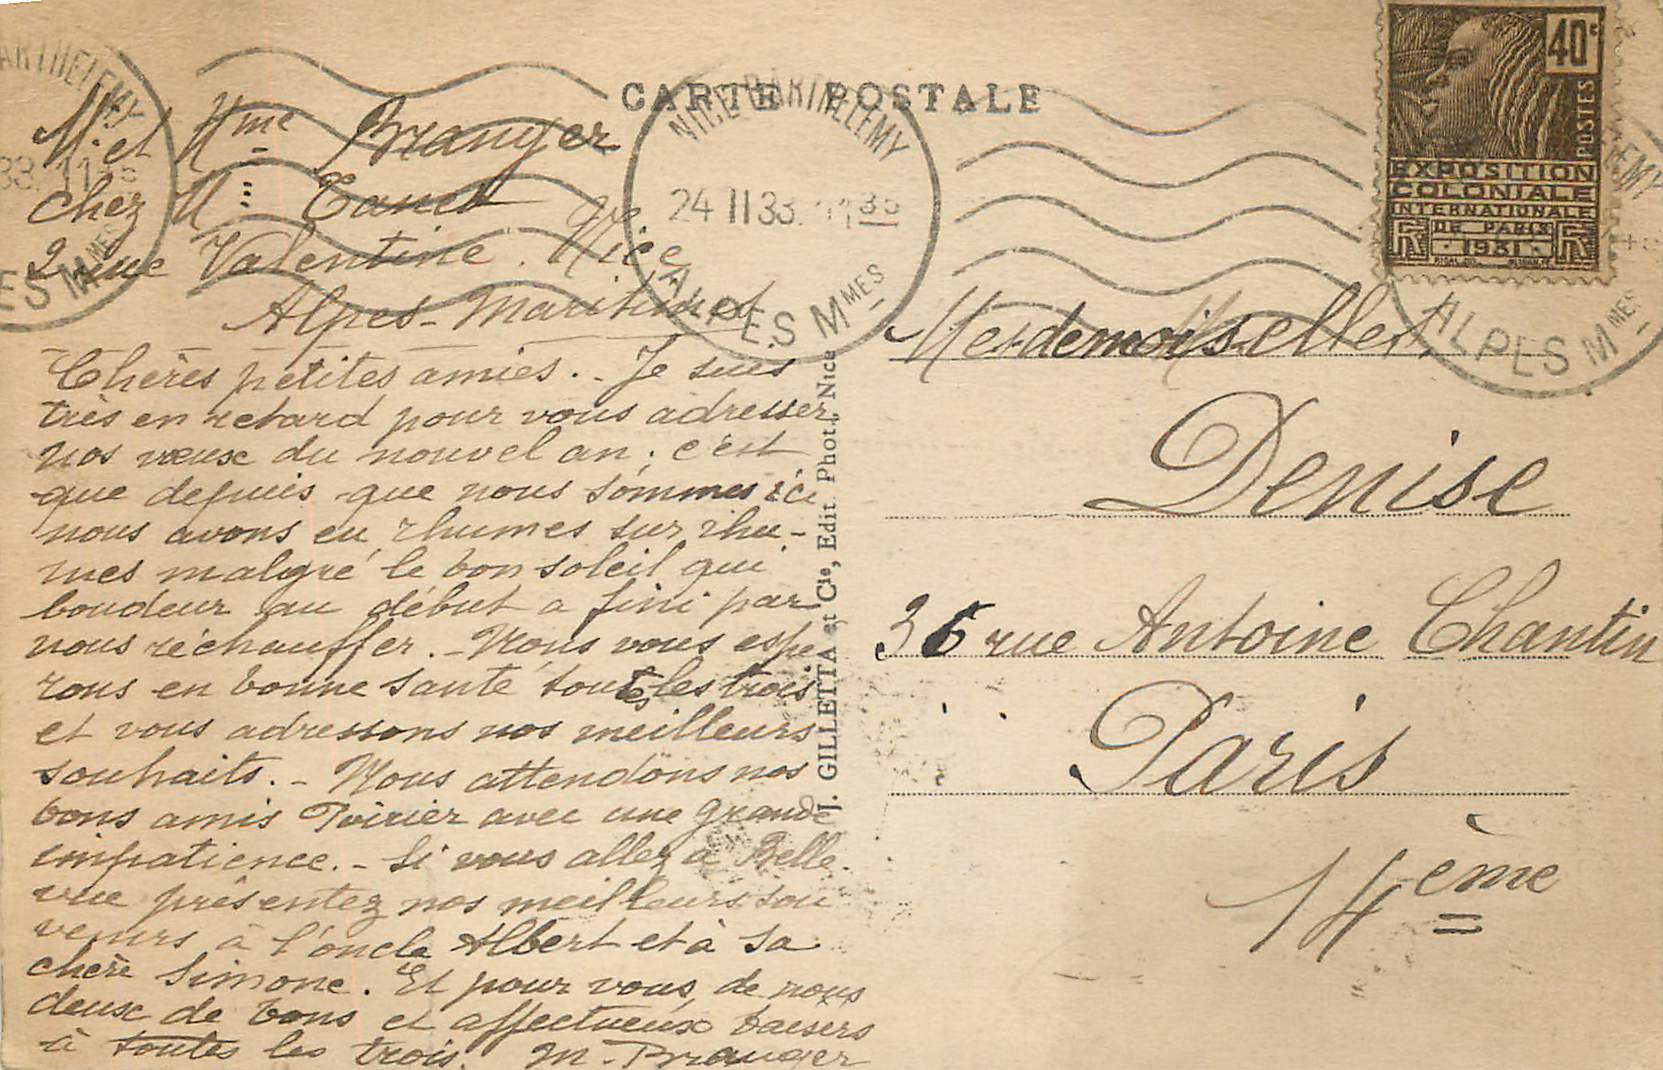 CARTE POSTALE
NICE BARTHELEMY
24 II 33. 11 35
ALPES MMES
40c
POSTES
EXPOSITION
COLONIALE
INTERNATIONALE
DE PARIS
1931
RF RF
ARTHELEMY
33. 11
ES MMES
ALPES MMES
Mr et Mme Branger
chez M
2 rue Valentine. Nice
Alpes-Maritimes
Chères petites amies. - Je suis
très en retard pour vous adresser
nos vœux du nouvel an; c'est
que depuis que nous sommes ici
nous avons eu rhumes sur rhu-
mes malgré le bon soleil qui
boudeur au début a fini par
nous réchauffer. - Nous vous espé
rons en bonne santé toutes les trois
et vous adressons nos meilleurs
souhaits. - Nous attendons nos
bons amis Poirier avec une grande
impatience. - Si vous allez à Belle-
vue présentez nos meilleurs sou
venirs à l'oncle Albert et à sa
chère Simone. Et pour vous, de nous
deux de bons et affectueux baisers
à toutes les trois. M. Branger
J. GILLETTA et Cie, Edit. Phot., Nice
Mesdemoiselles
Denise
36 rue Antoine Chantin
Paris
14ème